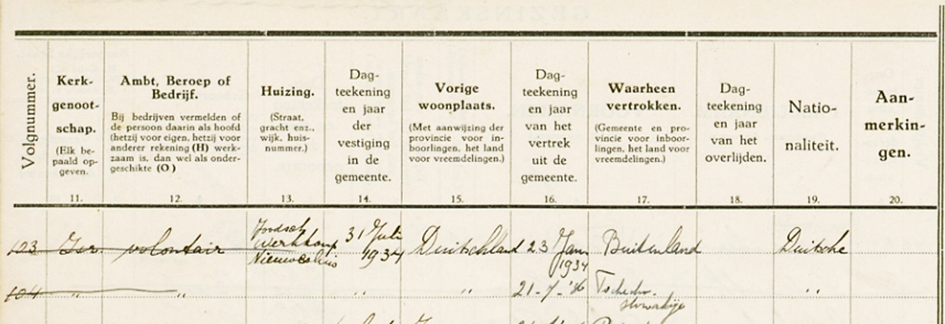 Volgnummer.
Kerk-
genoot-
schap.
(Elk be-
paald op-
geven.
11.
Ambt, Beroep of
Bedrijf.
Bij bedrijven vermelden of
de persoon daarin als hoofd
(hetzij voor eigen, hetzij voor
anderer rekening (H) werk-
zaam is, dan wel als onder-
geschikte (O)
12.
Huizing.
(Straat,
gracht enz.,
wijk, huis-
nummer.)
13.
Dag-
teekening
en jaar
der
vestiging
in de
gemeente.
14.
Vorige
woonplaats.
(Met aanwijzing der
provincie voor in-
boorlingen, het land
voor vreemdelingen.)
15.
Dag-
teekening
en jaar
van het
vertrek
uit de
gemeente.
16.
Waarheen
vertrokken.
(Gemeente en pro-
vincie voor inboor-
lingen, het land voor
vreemdelingen.)
17.
Dag-
teekening
en jaar
van het
overlijden.
18.
Natio-
naliteit.
19.
Aan-
merkin-
gen.
20.
103 Isr. volontair Joodsch
Werkkamp
Nieuwesluis 31 Juli
1934 Duitschland 23 Jan
1934 Buitenland Duitsche
104 " " " " 21-7-'36 Tschecho-
slowakije "